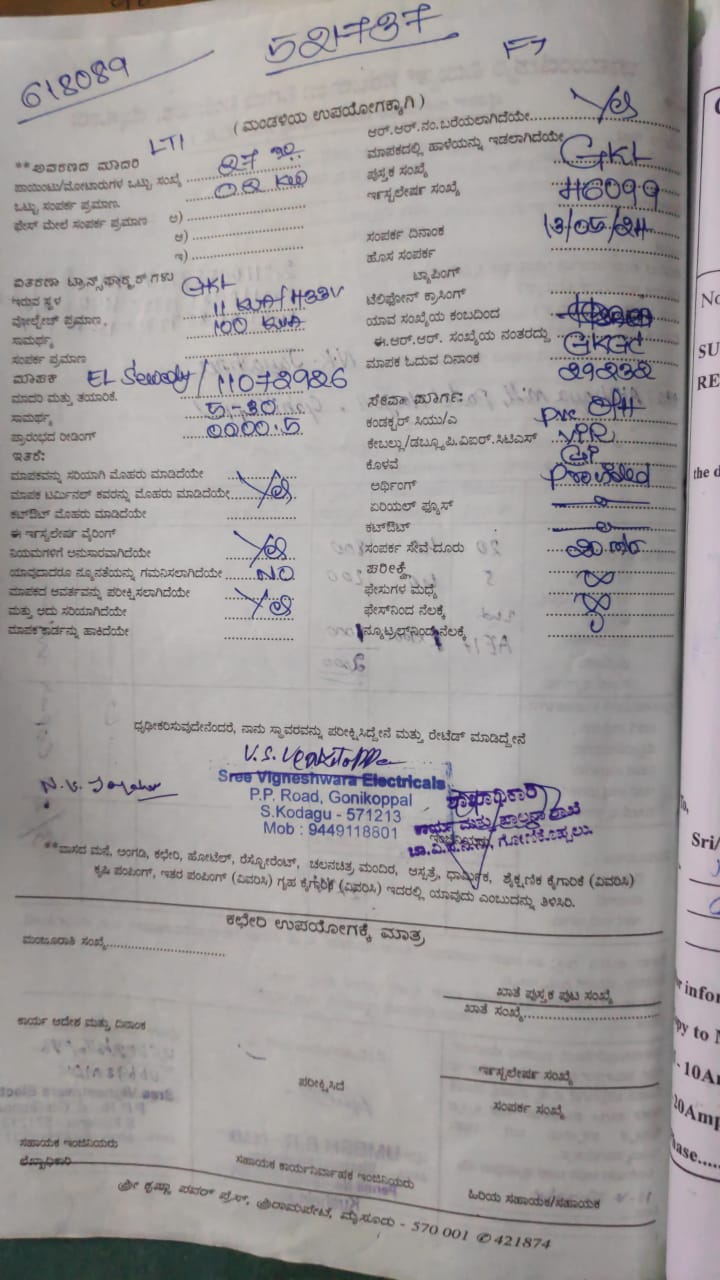 521737
618089
F7
( ಮಂಡಳಿಯ ಉಪಯೋಗಕ್ಕಾಗಿ )
LT1
ಆರ್.ಆರ್.ನಂ.ಬರೆಯಲಾಗಿದೆಯೇ Yes
ಮಾಪಕದಲ್ಲಿ ಹಾಳೆಯನ್ನು ಇಡಲಾಗಿದೆಯೇ
ಪುಸ್ತಕ ಸಂಖ್ಯೆ GKL
ಇನ್ಸ್ಟಲೇಷನ್ ಸಂಖ್ಯೆ 46099
ಸಂಪರ್ಕ ದಿನಾಂಕ 13/05/24
ಹೊಸ ಸಂಪರ್ಕ
ಟ್ಯಾಪಿಂಗ್
ಟೆಲಿಫೋನ್ ಕ್ರಾಸಿಂಗ್
ಯಾವ ಸಂಖ್ಯೆಯ ಕಂಬದಿಂದ
ಈ.ಆರ್.ಆರ್. ಸಂಖ್ಯೆಯ ನಂತರದ್ದು GKGC
ಮಾಪಕ ಓದುವ ದಿನಾಂಕ 29232
ಸೇವಾ ಮಾರ್ಗ:
ಕಂಡಕ್ಟರ್ ಸಿಯು/ಎ PVC OH
ಕೇಬಲ್ಲು/ಡಬ್ಲ್ಯೂ.ಪಿ.ಐಆರ್.ಸಿಟಿಎಸ್
ಕೊಳವೆ GIP
ಅರ್ಥಿಂಗ್ Provided
ಏರಿಯಲ್ ಫ್ಯೂಸ್
ಕಟ್ಔಟ್
ಸಂಪರ್ಕ ಸೇವೆ ದೂರು 20 mtr
ಪರೀಕ್ಷೆ
ಫೇಸುಗಳ ಮಧ್ಯೆ
ಫೇಸ್‌ನಿಂದ ನೆಲಕ್ಕೆ
ನ್ಯೂಟ್ರಲ್‌ನಿಂದ ನೆಲಕ್ಕೆ
**ಆವರಣದ ಮಾದರಿ
ಪಾಯಿಂಟು/ಮೋಟಾರುಗಳ ಒಟ್ಟು ಸಂಖ್ಯೆ 27
ಒಟ್ಟು ಸಂಪರ್ಕ ಪ್ರಮಾಣ. 02 KW
ಫೇಸ್ ಮೇಲೆ ಸಂಪರ್ಕ ಪ್ರಮಾಣ ಅ)
ಆ)
ಇ)
ವಿತರಣಾ ಟ್ರಾನ್ಸ್‌ಫಾರ್ಮರ್‌ಗಳು
ಇರುವ ಸ್ಥಳ GKL
ವೋಲ್ಟೇಜ್ ಪ್ರಮಾಣ. 11 KVA/433V
ಸಾಮರ್ಥ್ಯ 100 KVA
ಸಂಪರ್ಕ ಪ್ರಮಾಣ
ಮಾಪಕ / 11072926
ಮಾದರಿ ಮತ್ತು ತಯಾರಿಕೆ.
ಸಾಮರ್ಥ್ಯ 5-30
ಪ್ರಾರಂಭದ ರೀಡಿಂಗ್ 0000.5
ಇತರೆ:
ಮಾಪಕವನ್ನು ಸರಿಯಾಗಿ ಮೊಹರು ಮಾಡಿದೆಯೇ
ಮಾಪಕ ಟರ್ಮಿನಲ್ ಕವರನ್ನು ಮೊಹರು ಮಾಡಿದೆಯೇ Yes
ಕಟ್ಔಟ್ ಮೊಹರು ಮಾಡಿದೆಯೇ
ಈ ಇನ್ಸ್ಟಲೇಷನ್ ವೈರಿಂಗ್
ನಿಯಮಗಳಿಗೆ ಅನುಸಾರವಾಗಿದೆಯೇ Yes
ಯಾವುದಾದರೂ ನ್ಯೂನತೆಯನ್ನು ಗಮನಿಸಲಾಗಿದೆಯೇ NO
ಮಾಪಕದ ಆವರ್ತವನ್ನು ಪರೀಕ್ಷಿಸಲಾಗಿದೆಯೇ
ಮತ್ತು ಅದು ಸರಿಯಾಗಿದೆಯೇ Yes
ಮಾಪಕ ಕಾರ್ಡನ್ನು ಹಾಕಿದೆಯೇ
ಧೃಢೀಕರಿಸುವುದೇನೆಂದರೆ, ನಾನು ಸ್ಥಾವರವನ್ನು ಪರೀಕ್ಷಿಸಿದ್ದೇನೆ ಮತ್ತು ರೇಟೆಡ್ ಮಾಡಿದ್ದೇನೆ
Sree Vigneshwara Electricals
P.P. Road, Gonikoppal
S.Kodagu - 571213
Mob : 9449118801
ಶಾಖಾಧಿಕಾರಿ
ಕಾರ್ಯ ಮತ್ತು ಪಾಲನಾ ಶಾಖೆ
ಚಾ.ವಿ.ಸ.ನಿ.ನಿ, ಗೋಣಿಕೊಪ್ಪಲು.
**ವಾಸದ ಮನೆ, ಅಂಗಡಿ, ಕಛೇರಿ, ಹೋಟೆಲ್, ರೆಸ್ಟೋರೆಂಟ್, ಚಲನಚಿತ್ರ ಮಂದಿರ, ಆಸ್ಪತ್ರೆ, ಧಾರ್ಮಿಕ, ಶೈಕ್ಷಣಿಕ ಕೈಗಾರಿಕೆ (ವಿವರಿಸಿ)
ಕೃಷಿ ಪಂಪಿಂಗ್, ಇತರ ಪಂಪಿಂಗ್ (ವಿವರಿಸಿ) ಗೃಹ ಕೈಗಾರಿಕೆ (ವಿವರಿಸಿ) ಇದರಲ್ಲಿ ಯಾವುದು ಎಂಬುದನ್ನು ತಿಳಿಸಿರಿ.
ಕಛೇರಿ ಉಪಯೋಗಕ್ಕೆ ಮಾತ್ರ
ಮಂಜೂರಾತಿ ಸಂಖ್ಯೆ
ಖಾತೆ ಪುಸ್ತಕ ಪುಟ ಸಂಖ್ಯೆ
ಖಾತೆ ಸಂಖ್ಯೆ
ಕಾರ್ಯ ಆದೇಶ ಮತ್ತು ದಿನಾಂಕ
ಪರೀಕ್ಷಿಸಿದೆ
ಇನ್ಸ್ಟಲೇಷನ್ ಸಂಖ್ಯೆ
ಸಂಪರ್ಕ ಸಂಖ್ಯೆ
ಸಹಾಯಕ ಇಂಜಿನಿಯರು
ಲೆಕ್ಕಾಧಿಕಾರಿ
ಸಹಾಯಕ ಕಾರ್ಯನಿರ್ವಾಹಕ ಇಂಜಿನಿಯರು
ಹಿರಿಯ ಸಹಾಯಕ/ಸಹಾಯಕ
ಶ್ರೀ ಕೃಷ್ಣಾ ಪವರ್ ಪ್ರೆಸ್, ಶ್ರೀರಾಮಪೇಟೆ, ಮೈಸೂರು - 570 001 ✆ 421874
No
SU
RE
the d
Sri/
r infor
py to
- 10A
20Amp
hase.....